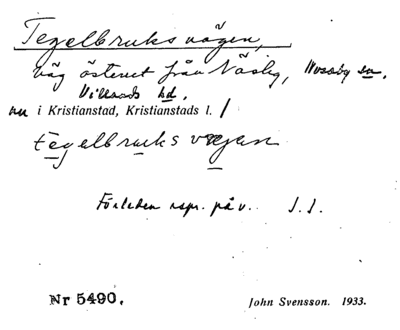 Tegelbruksvägen,
väg österut från Näsby, Nosaby sn,
Villands hd.
nu i Kristianstad, Kristianstads l. /
tegelbruksvægen
Förleden uspr. på v. J. S.
Nr 5490.
John Svensson. 1933.